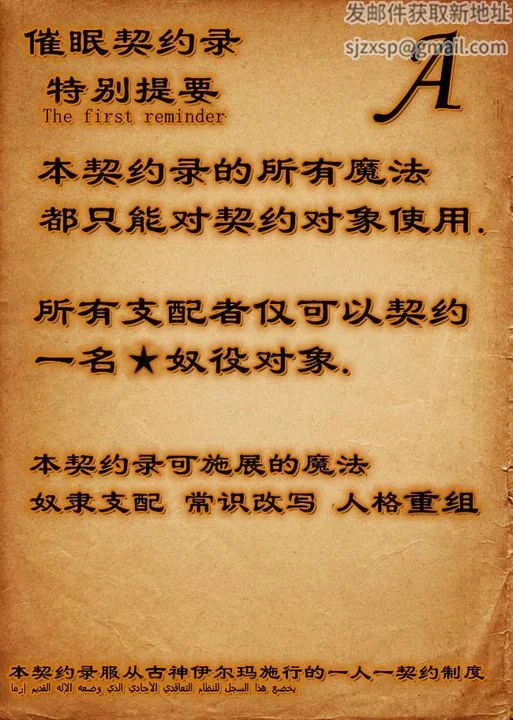 发邮件获取新地址
sjzxsp@gmail.com
催眠契约录
A
特别提要
The first reminder
本契约录的所有魔法
都只能对契约对象使用.
所有支配者仅可以契约
一名★奴役对象.
本契约录可施展的魔法
奴隶支配 常识改写 人格重组
本契约录服从古神伊尔玛施行的一人一契约制度
يخضع هذا السجل للنظام التعاقدي الأحادي الذي وضعه الإله القديم إرما